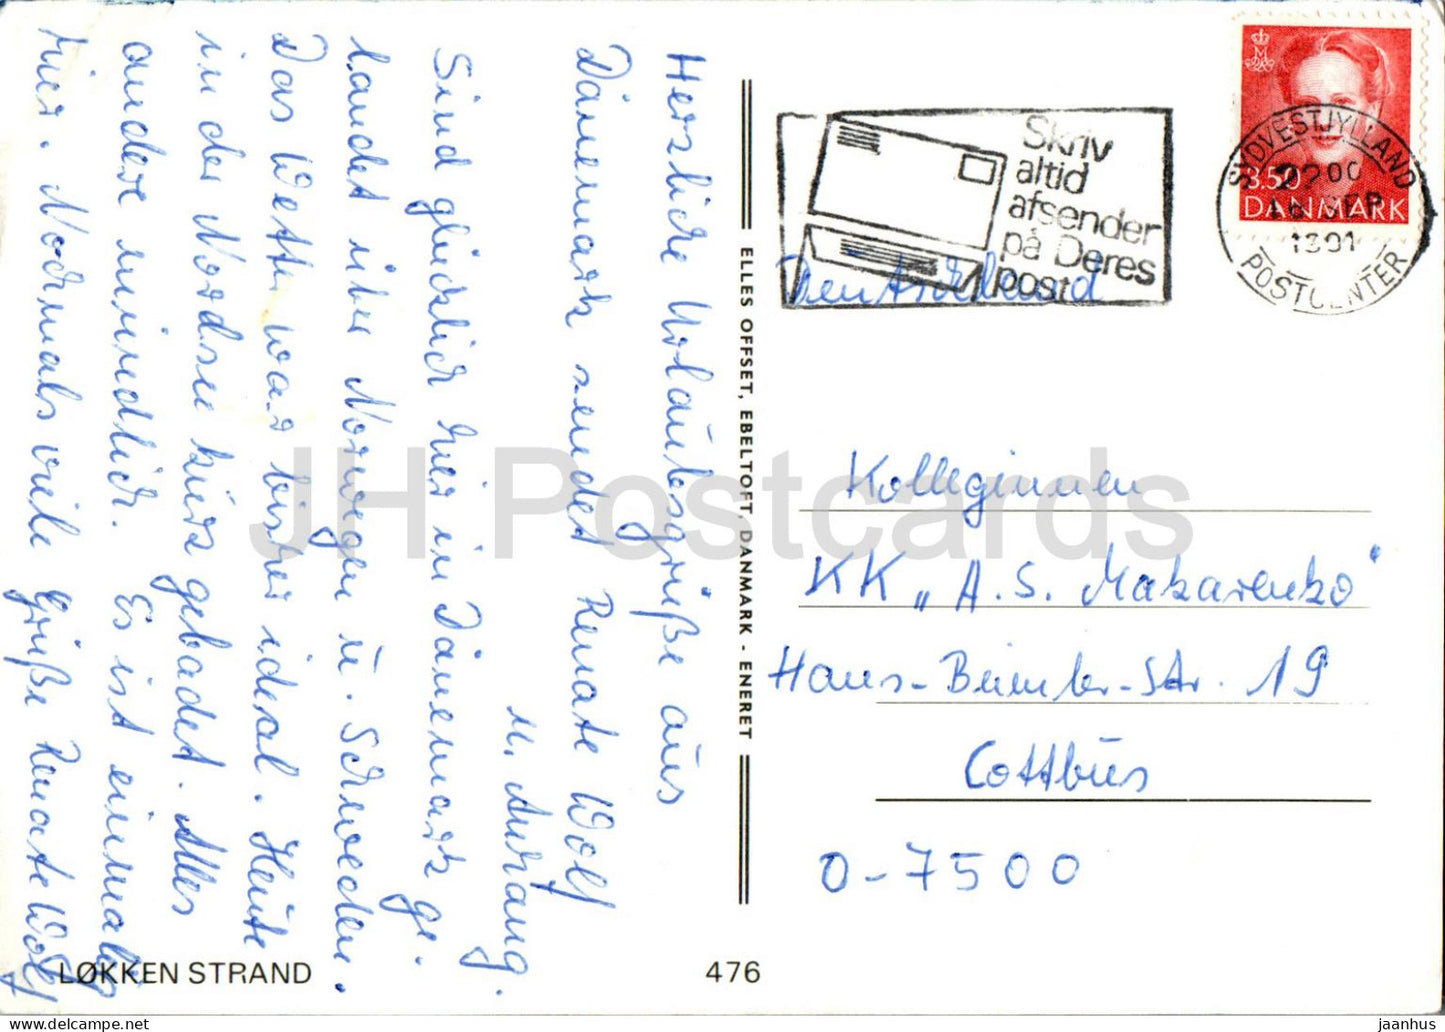 Herzliche Urlaubsgrüße aus
Dänemark sendet Renate Wolf
u. Anhang.
Sind glücklich hier in Dänemark ge-
landet über Norwegen u. Schweden.
Das Wetter war bisher ideal. Heute
in der Nordsee kurz gebadet. Alles
andere mündlich. Es ist einmalig
hier. Nochmals viele Grüße Renate Wolf
LØKKEN STRAND
476
ELLES OFFSET, EBELTOFT, DANMARK - ENERET
Skriv
altid
afsender
på Deres
post
3.50
DANMARK
SYDVESTJYLLAND
SEP
1991
POSTCENTER
Deutschland
Kolleginnen
KK „A. S. Makarenko"
Hans-Beimler-Str. 19
Cottbus
O-7500
JH Postcards
jaanhus @ delcampe.net